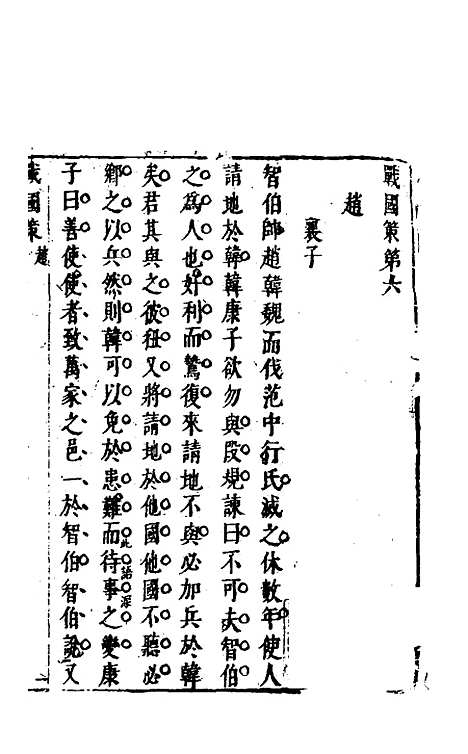 戰國策第六
趙
襄子
智伯帥趙韓魏而伐范中行氏滅之休數年使人
請地於韓韓康子欲勿與段規諫曰不可夫智伯
之爲人也好利而鷙復來請地不與必加兵於韓
矣君其與之彼狃又將請地於他國他國不聽必
鄉之以兵然則韓可以免於患難而待事之變康
子曰善使使者致萬家之邑一於智伯智伯說又
此語深
戰國策 趙